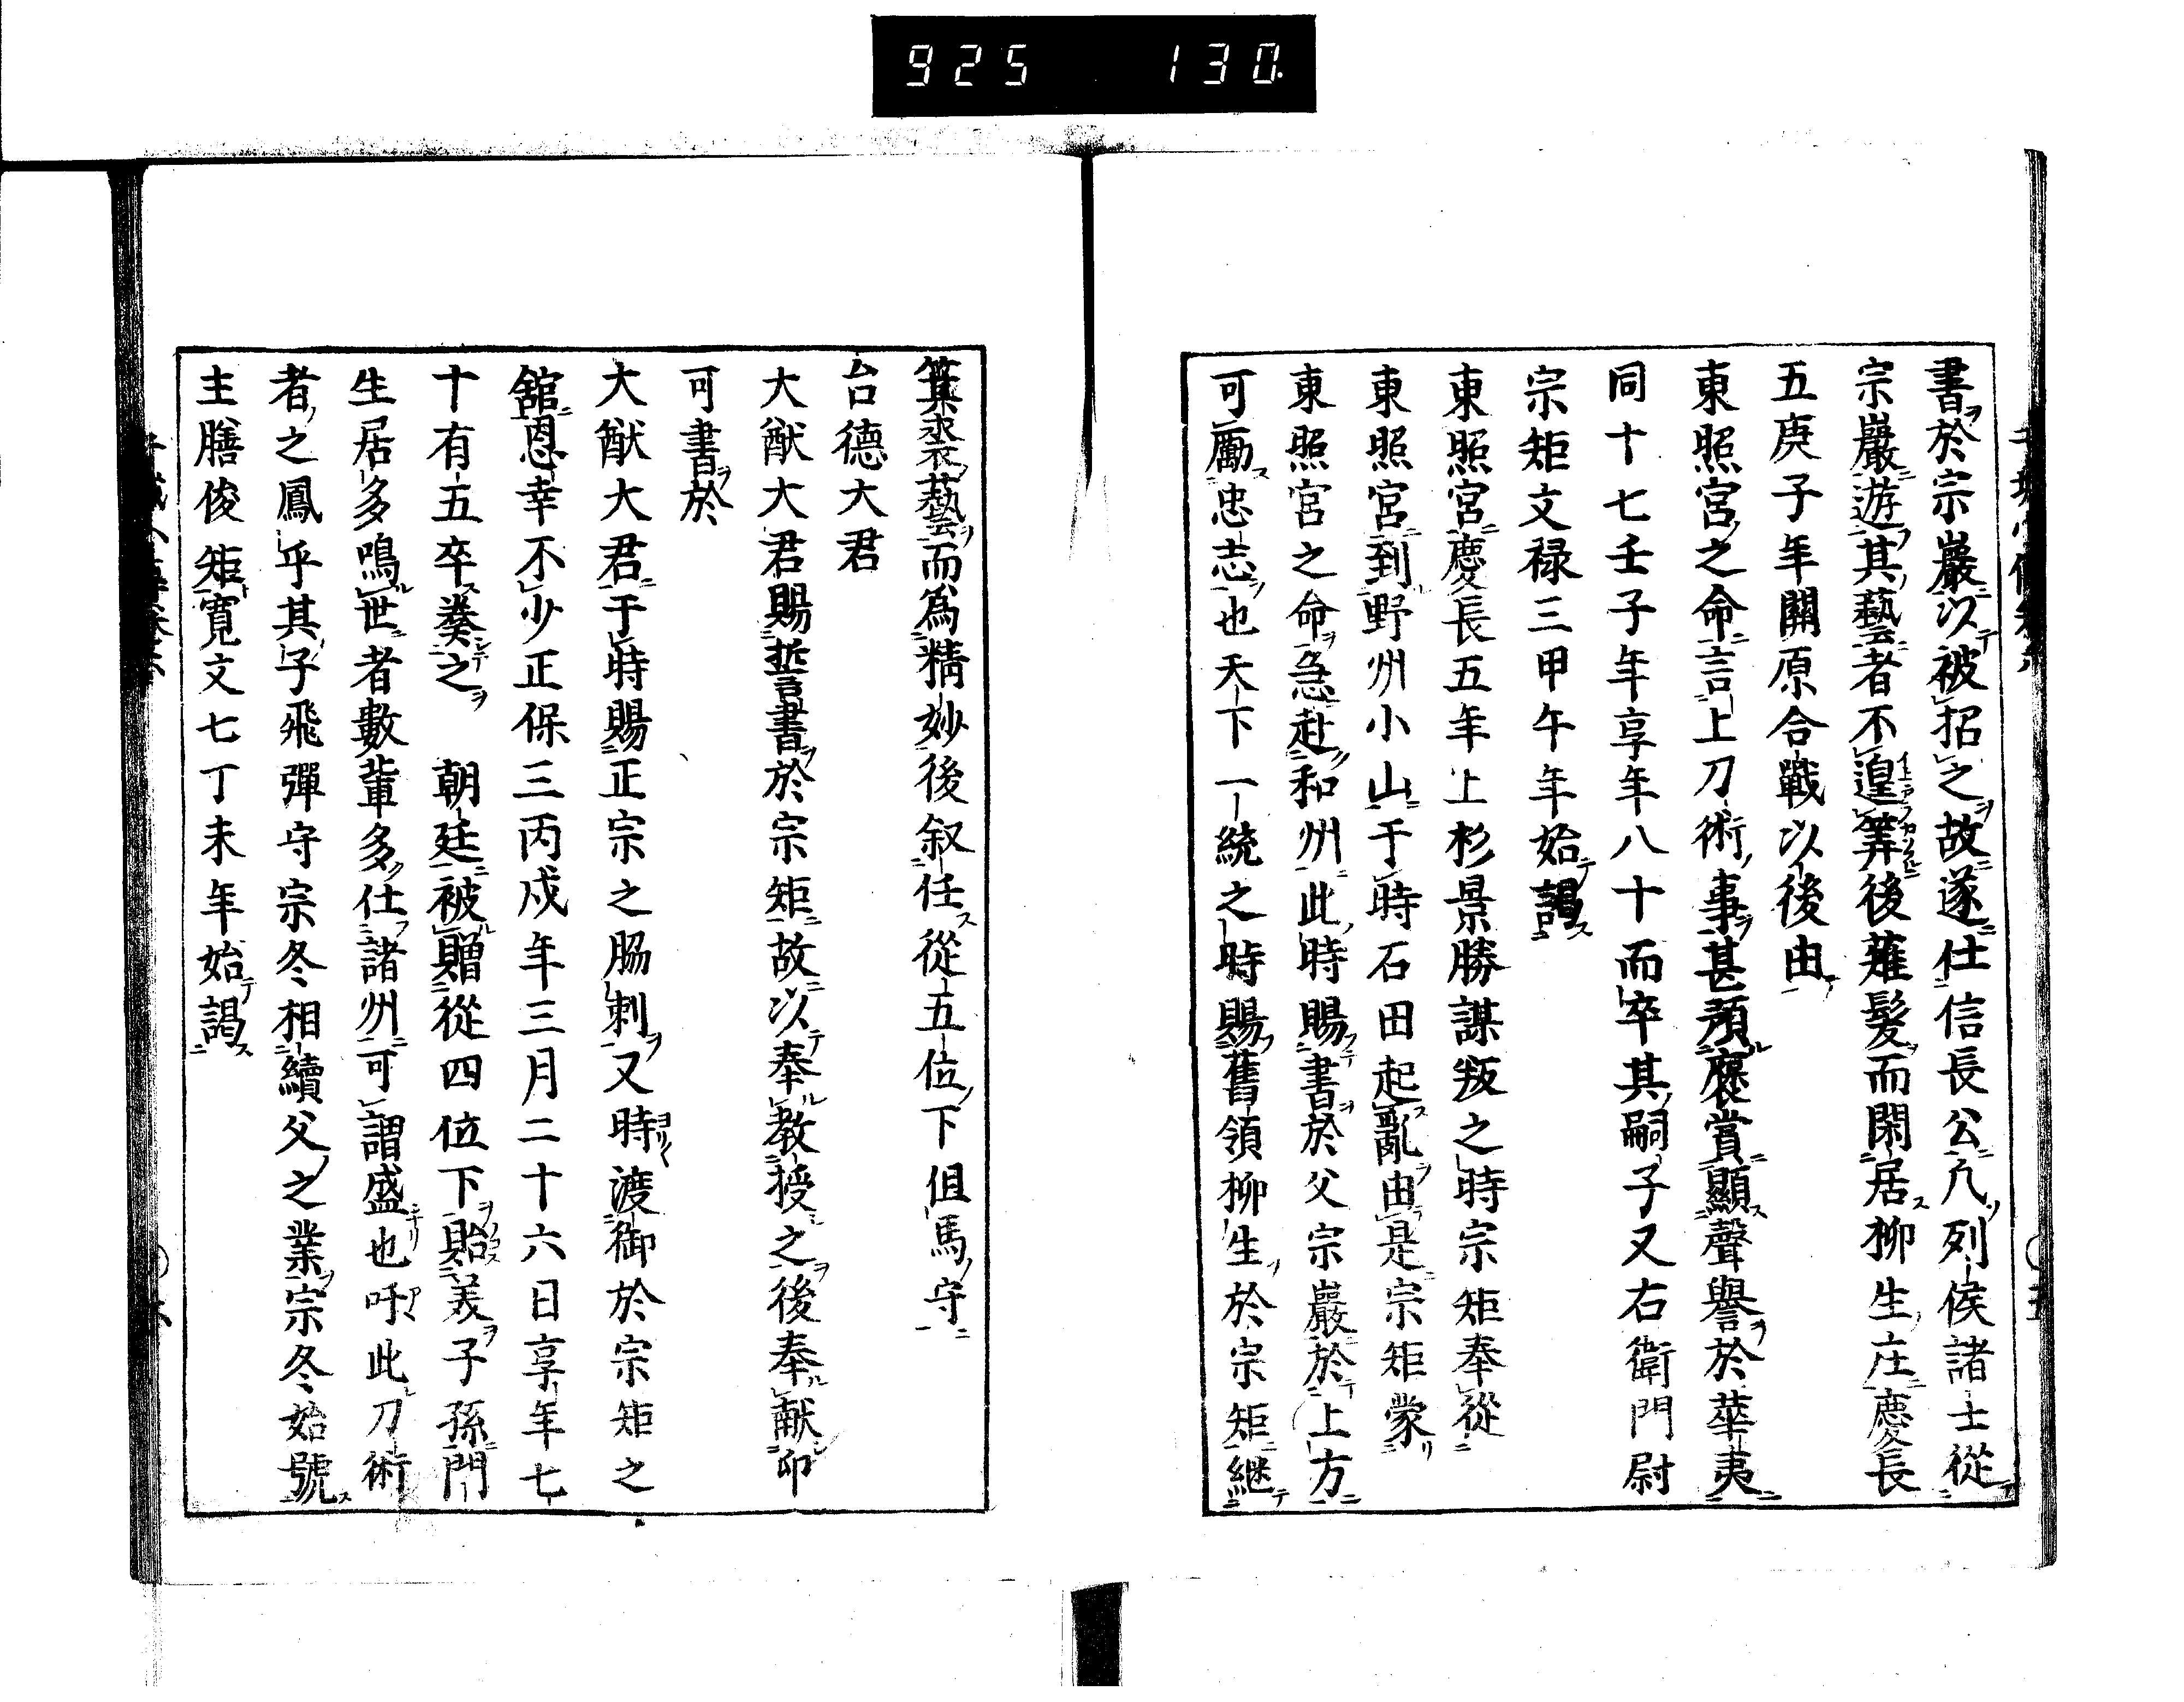 925 130
書於宗嚴以被招之故遂仕信長公凡列侯諸士從
宗嚴遊其藝者不遑筭後薙髮而閑居柳生庄慶長
五庚子年關原合戰以後由
東照宮之命言上刀術事甚預褒賞顯聲譽於華夷
同十七壬子年享年八十而卒其嗣子又右衛門尉
宗矩文禄三甲午年始謁
東照宮慶長五年上杉景勝謀叛之時宗矩奉從
東照宮到野州小山于時石田起亂由是宗矩蒙
東照宮之命急赴和州此時賜書於父宗嚴於上方
可勵忠志也天下一統之時賜舊領柳生於宗矩継
箕裘藝而為精妙後叙任從五位下但馬守
台德大君
大猷大君賜誓書於宗矩故以奉教授之後奉献印
可書於
大猷大君于時賜正宗之脇刺又時渡御於宗矩之
舘恩幸不少正保三丙戌年三月二十六日享年七
十有五卒葬之　朝廷被贈從四位下貽美子孫門
生居多鳴世者數輩多仕諸州可謂盛也吁此刀術
者之鳳乎其子飛彈守宗冬相續父之業宗冬始號
主膳俊矩寬文七丁未年始謁